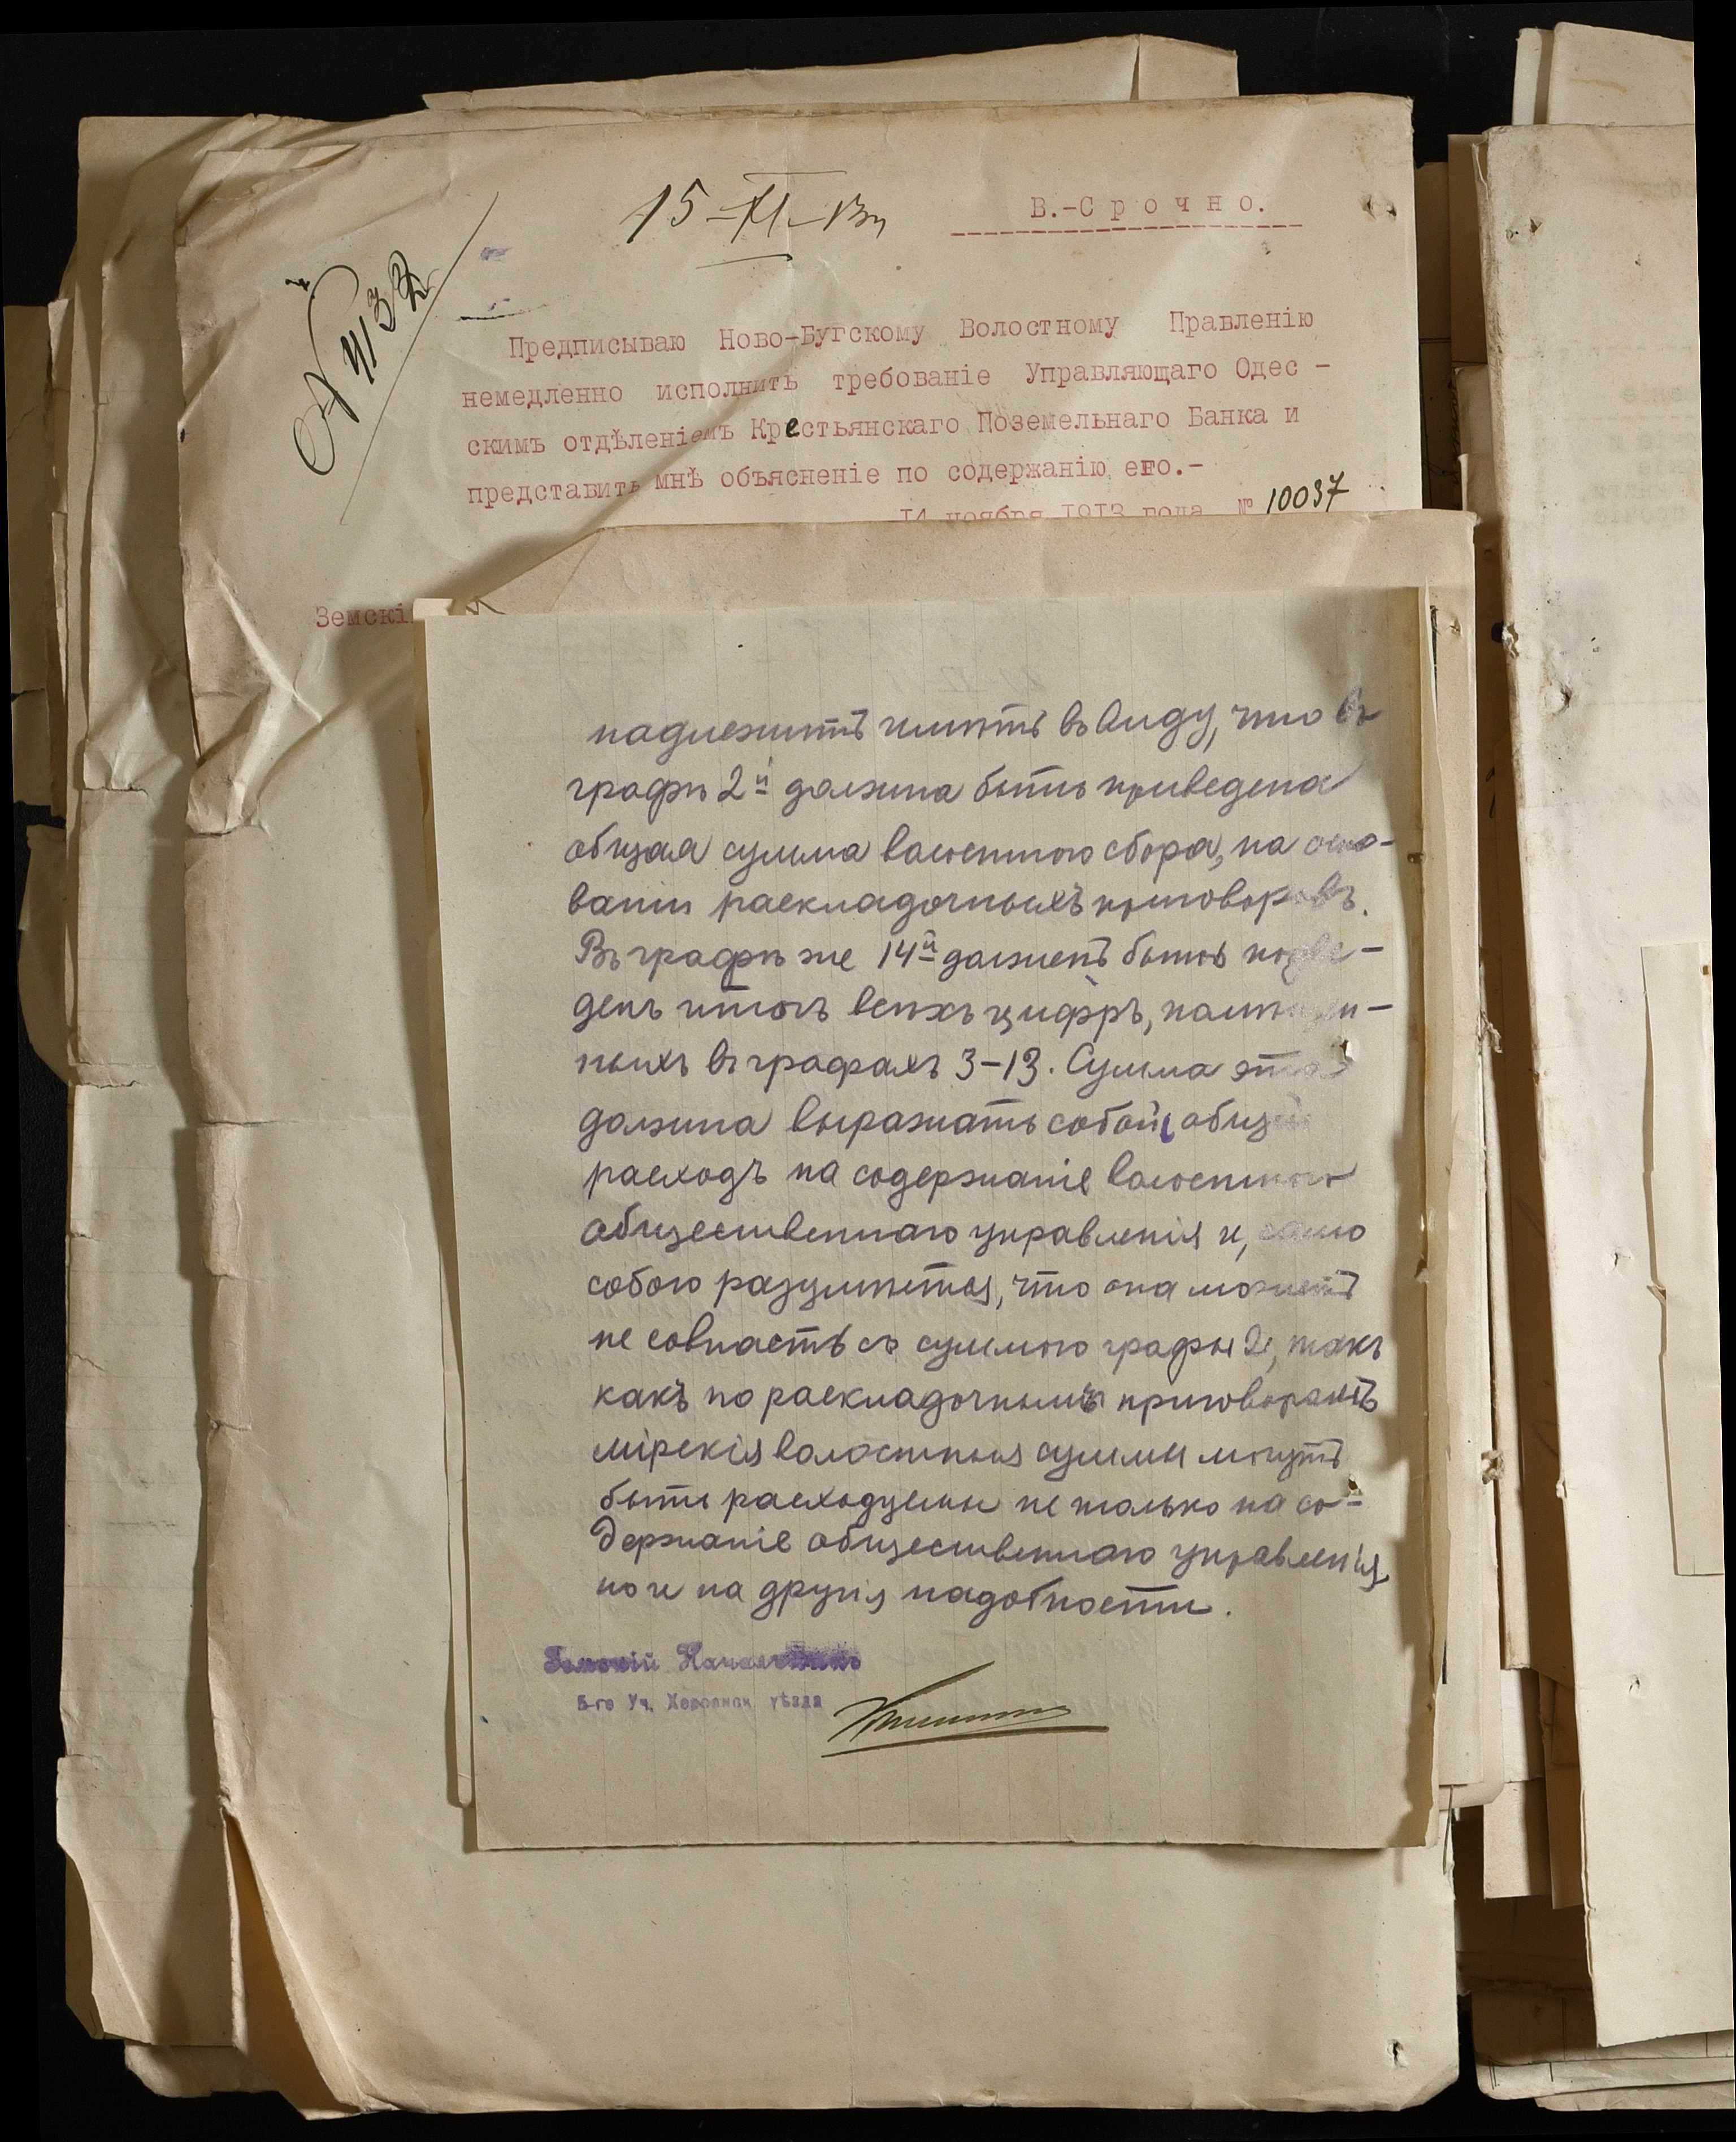 15-XI-13 г.
В.-Срочно.
№ 4132
Предписываю Ново-Бугскому Волостному Правленію
немедленно исполнить требованіе Управляющаго Одес -
скимъ отдѣленіемъ Крестьянскаго Поземельнаго Банка и
представить мнѣ объясненіе по содержанію его.-
14 ноября 1913 года № 10037
Земскі
надлежитъ имѣть въ виду, что въ
графѣ 2й должна быть приведена
общая сумма волостного сбора, на осно-
ваніи раскладочныхъ приговоровъ.
Въ графѣ же 14й долженъ быть подве-
денъ итогъ всѣхъ цифръ, помѣщен-
ныхъ въ графахъ 3-13. Сумма эта
должна выражать собой общій
расходъ на содержаніе волостного
общественнаго управленія и, само
собою разумѣется, что она можетъ
не совпасть съ суммою графы 2, такъ
какъ по раскладочнымъ приговорамъ
мірскія волостныя суммы могутъ
быть расходуемы не только на со-
держаніе общественнаго управленія,
но и на другія надобности.
Земскій Начальникъ
5-го Уч. Херсонск. уѣзда